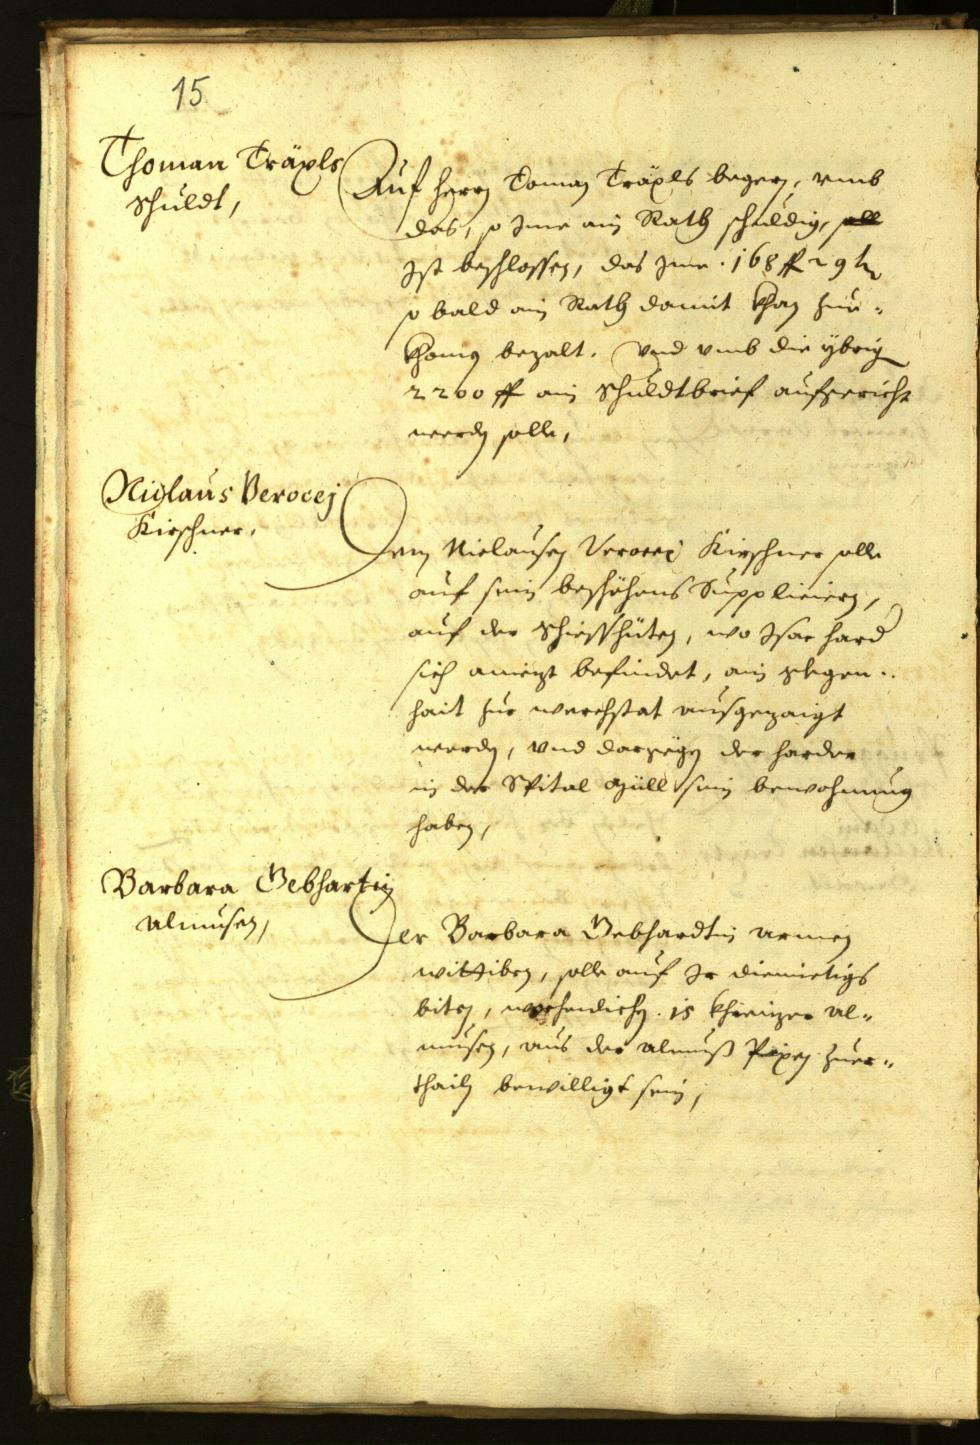 15
Thoman Träxls
schuldt,
Auf herrn Toman Träxls begern, vmb
das, so Jme ain Rath schuldig, soll
Jst beschlossen, das Jme . 168 ff 29 kr
so bald ain Rath damit khan zue-
khomen bezalt. Vnd vmb die ybrig
2200 ff ain schuldtbrief aufgericht
werden solle,
Niclaus Verocej
Kirschner.
Dem Niclausen Verocej Kirschner solle
auf sein beschehens Suppliciern,
auf der schiesshüten, wo Isac hard
sich aniezt befindet, ain glegen-
hait zur werchstat ausgezaigt
werden, vnd dargegen der harder
in der Spital Müll sein bewohnung
haben,
Barbara Gebhartin
Almusen,
Der Barbara Gebhardtin armen
wittiben, solle auf Jr diemietigs
biten, wochendlich . 15 khreizer Al-
musen, aus der Almuß Pixen zuer-
thailn bewilligt sein,